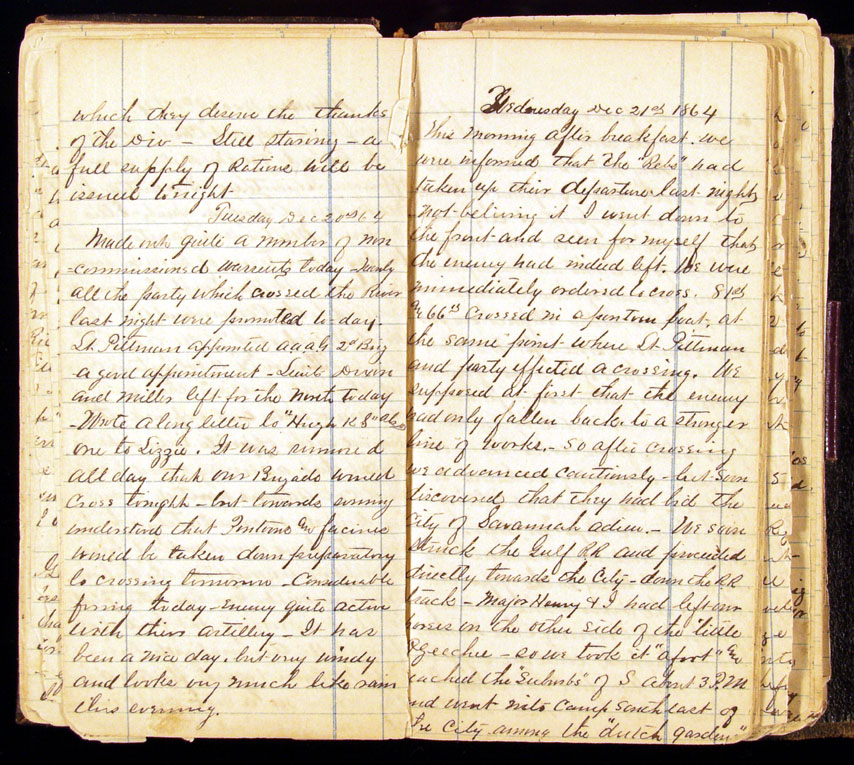 which they deserve the thanks
of the Div - Still starving - a
full supply of Rations will be
issued tonight
Tuesday Dec 20th 64
Made out quite a number of non
-commissioned warrents today - Nearly
all the party which crossed the River
last night were promoted to-day.
Lt. Pittman appointed a a a G 2d Brig
- a good appointment - Lieuts Dixon
and Miller left for the North today
- Wrote a long letter to "Hugh K 8" also
one to Lizzie. It was rumored
all day that our Brigade would
cross tonight - but towards evening
understood that Pontoons & facines
would be taken down preparatory
to crossing tomorrow - Considerable
firing today - Enemy quite active
with their artillery - It has
been a nice day. but very windy
and looks very much like rain
this evening.
Wednesday Dec 21st 1864
This morning after breakfast. we
were informed that the "Rebs" had
taken up their departure last night,
-not beliving it I went down to
the front and seen for myself that
the enemy had indeed left. We were
immediately ordered to cross. 81st
& 66th crossed in a pontoon boat, at
the same point where Lt. Pittman
and party effected a crossing. We
supposed at first that the enemy
had only fallen back to a stronger
line of works. - So after crossing
we advanced cautiously - but soon
discovered that they had bid the
City of Savannah adieu. - We soon
struck the Gulf RR and proceeded
directly towards the City - down the RR
track - Major Henry & I had left our
horses on the other side of the little
Ogeechee - so we took it "afoot" &
reached the "Suburbs" of S about 3 P.M
and went into Camp South east of
the City among the "dutch gardens"